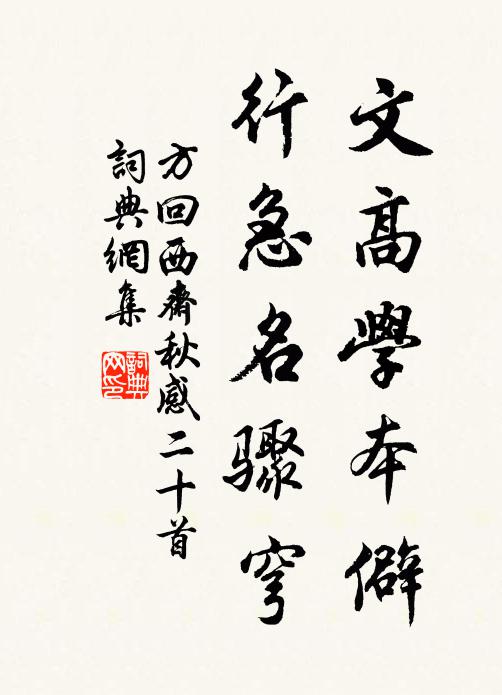 文高學本僻
行急名驟穹
方回西齋秋感二十首
詞典網集
詞典網印